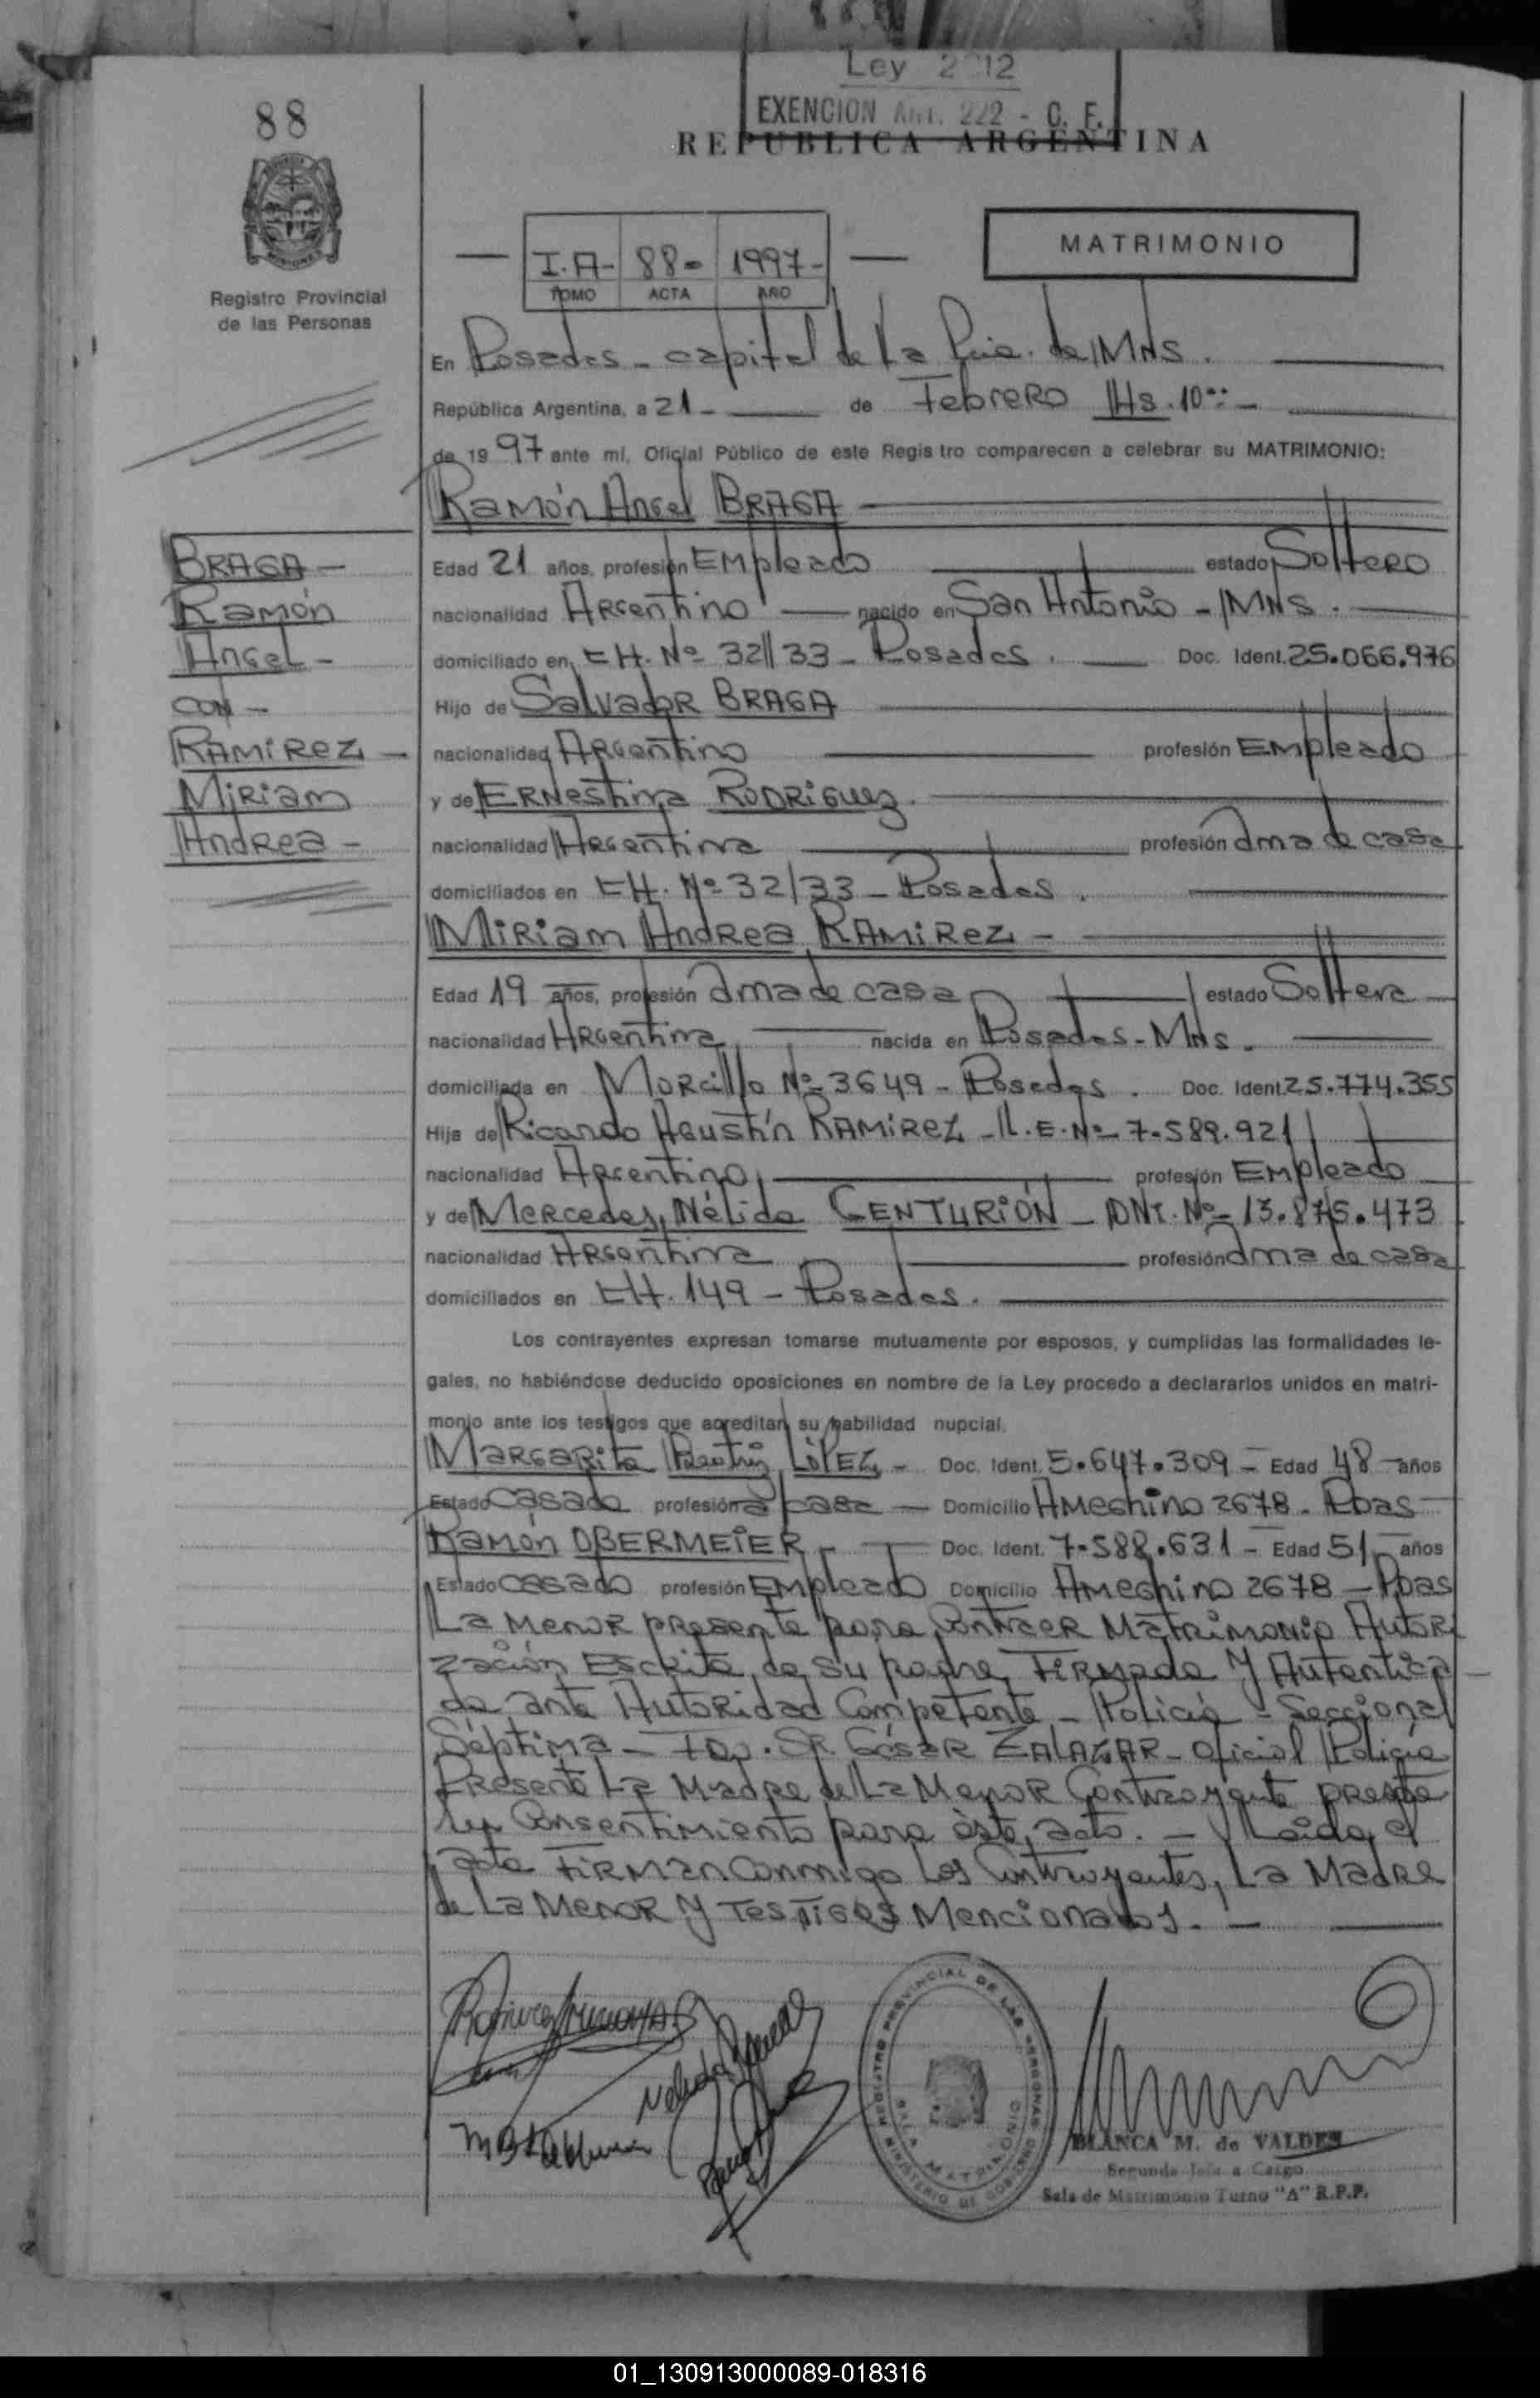 88
Ley 2
EXENCION Art. 222 - C. F.
REPUBLICA ARGENTINA
MATRIMONIO
I.A- 88- 1997-
TOMO ACTA AÑO
Registro Provincial
de las Personas
En Posadas - capital de La Pcia. de MNS.
República Argentina, a 21 - de Febrero Hs. 10
de 1997 ante mí, Oficial Público de este Registro comparecen a celebrar su MATRIMONIO:
Ramón Angel BRAGA
BRAGA -
Ramón
Angel -
CON -
RAMIREZ -
Miriam
Andrea -
Edad 21 años, profesión Empleado estado Soltero
nacionalidad Argentino nacido en San Antonio - MNS.
domiciliado en CH. Nº 32/33 - Posadas. Doc. Ident. 25.066.976
Hijo de Salvador BRAGA
nacionalidad Argentino profesión Empleado
y de Ernestina RODRIGUEZ.
nacionalidad Argentina profesión ama de casa
domiciliados en CH. Nº 32/33 - Posadas.
Miriam Andrea RAMIREZ -
Edad 19 años, profesión ama de casa estado Soltera
nacionalidad Argentina nacida en Posadas - MNS.
domiciliada en Morcillo Nº 3649 - Posadas. Doc. Ident. 25.774.355
Hija de Ricardo Agustín RAMIREZ - L.E. Nº 7.589.921
nacionalidad Argentino profesión Empleado
y de Mercedes Nélida CENTURIÓN - DNI. Nº 13.875.473
nacionalidad Argentina profesión ama de casa
domiciliados en CH. 149 - Posadas.
Los contrayentes expresan tomarse mutuamente por esposos, y cumplidas las formalidades le-
gales, no habiéndose deducido oposiciones en nombre de la Ley procedo a declararlos unidos en matri-
monio ante los testigos que acreditan su habilidad nupcial.
Margarita Beatriz LÓPEZ - Doc. Ident. 5.647.309 - Edad 48 años
Estado Casada profesión a casa - Domicilio Ameghino 2678 - Pdas
Ramón OBERMEIER - Doc. Ident. 7.588.631 - Edad 51 años
Estado Casado profesión Empleado Domicilio Ameghino 2678 - Pdas
La menor presenta para contraer Matrimonio Autori
zación Escrita de su padre Firmada y Autentica
da ante Autoridad Competente - Policía - Seccional
Séptima - Fdo. Sr César ZALAZAR - oficial Policía
Presente La Madre de La Menor Contrayente presta
su Consentimiento para éste acto. - Leída el
acta Firman conmigo Los Contrayentes, La Madre
de La Menor y Testigos Mencionados. -
REGISTRO PROVINCIAL DE LAS PERSONAS
SALA MATRIMONIO
MINISTERIO DE GOBIERNO
BLANCA M. de VALDES
Segunda Jefa a Cargo
Sala de Matrimonio Turno "A" R.P.P.
01_130913000089-018316